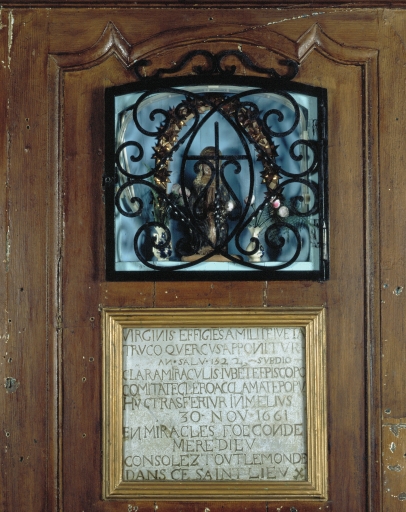 VIRGINIS EFFIGIES A MILITE FVET
TRVCO QVERCVS APPONITVR
AN SALV 1522
CLARA MIRACVLIS IVBET EPISCOPO
COMITATE CLERO ACCLAMATE POPV
HVC TRASFERTVR IN MELIVS
30 NOV 1661
EN MIRACLES FOECONDE
MERE DIEV
CONSOLEZ TOVT LE MONDE
DANS CE SAINT LIEV